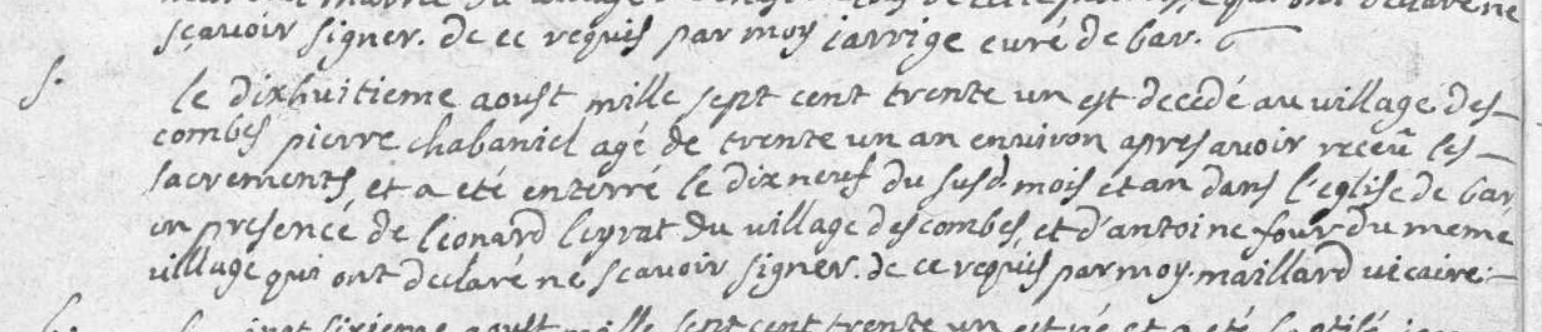 sçavoir signer. de ce requis par moy jarrige curé de bar.
s. le dixhuitieme aoust mille sept cent trente un est decedé au village des
combes pierre chabaniel agé de trente un an environ apres avoir receü les
sacrements, et a eté enterré le dix neuf du susd. mois et an dans l'eglise de bar
en presence de leonard leyrat du village des combes, et d'antoine four du meme
village qui ont declaré ne scavoir signer. de ce requis par moy. maillard vicaire.
sixieme aoust mille sept cent trente un est né et a eté